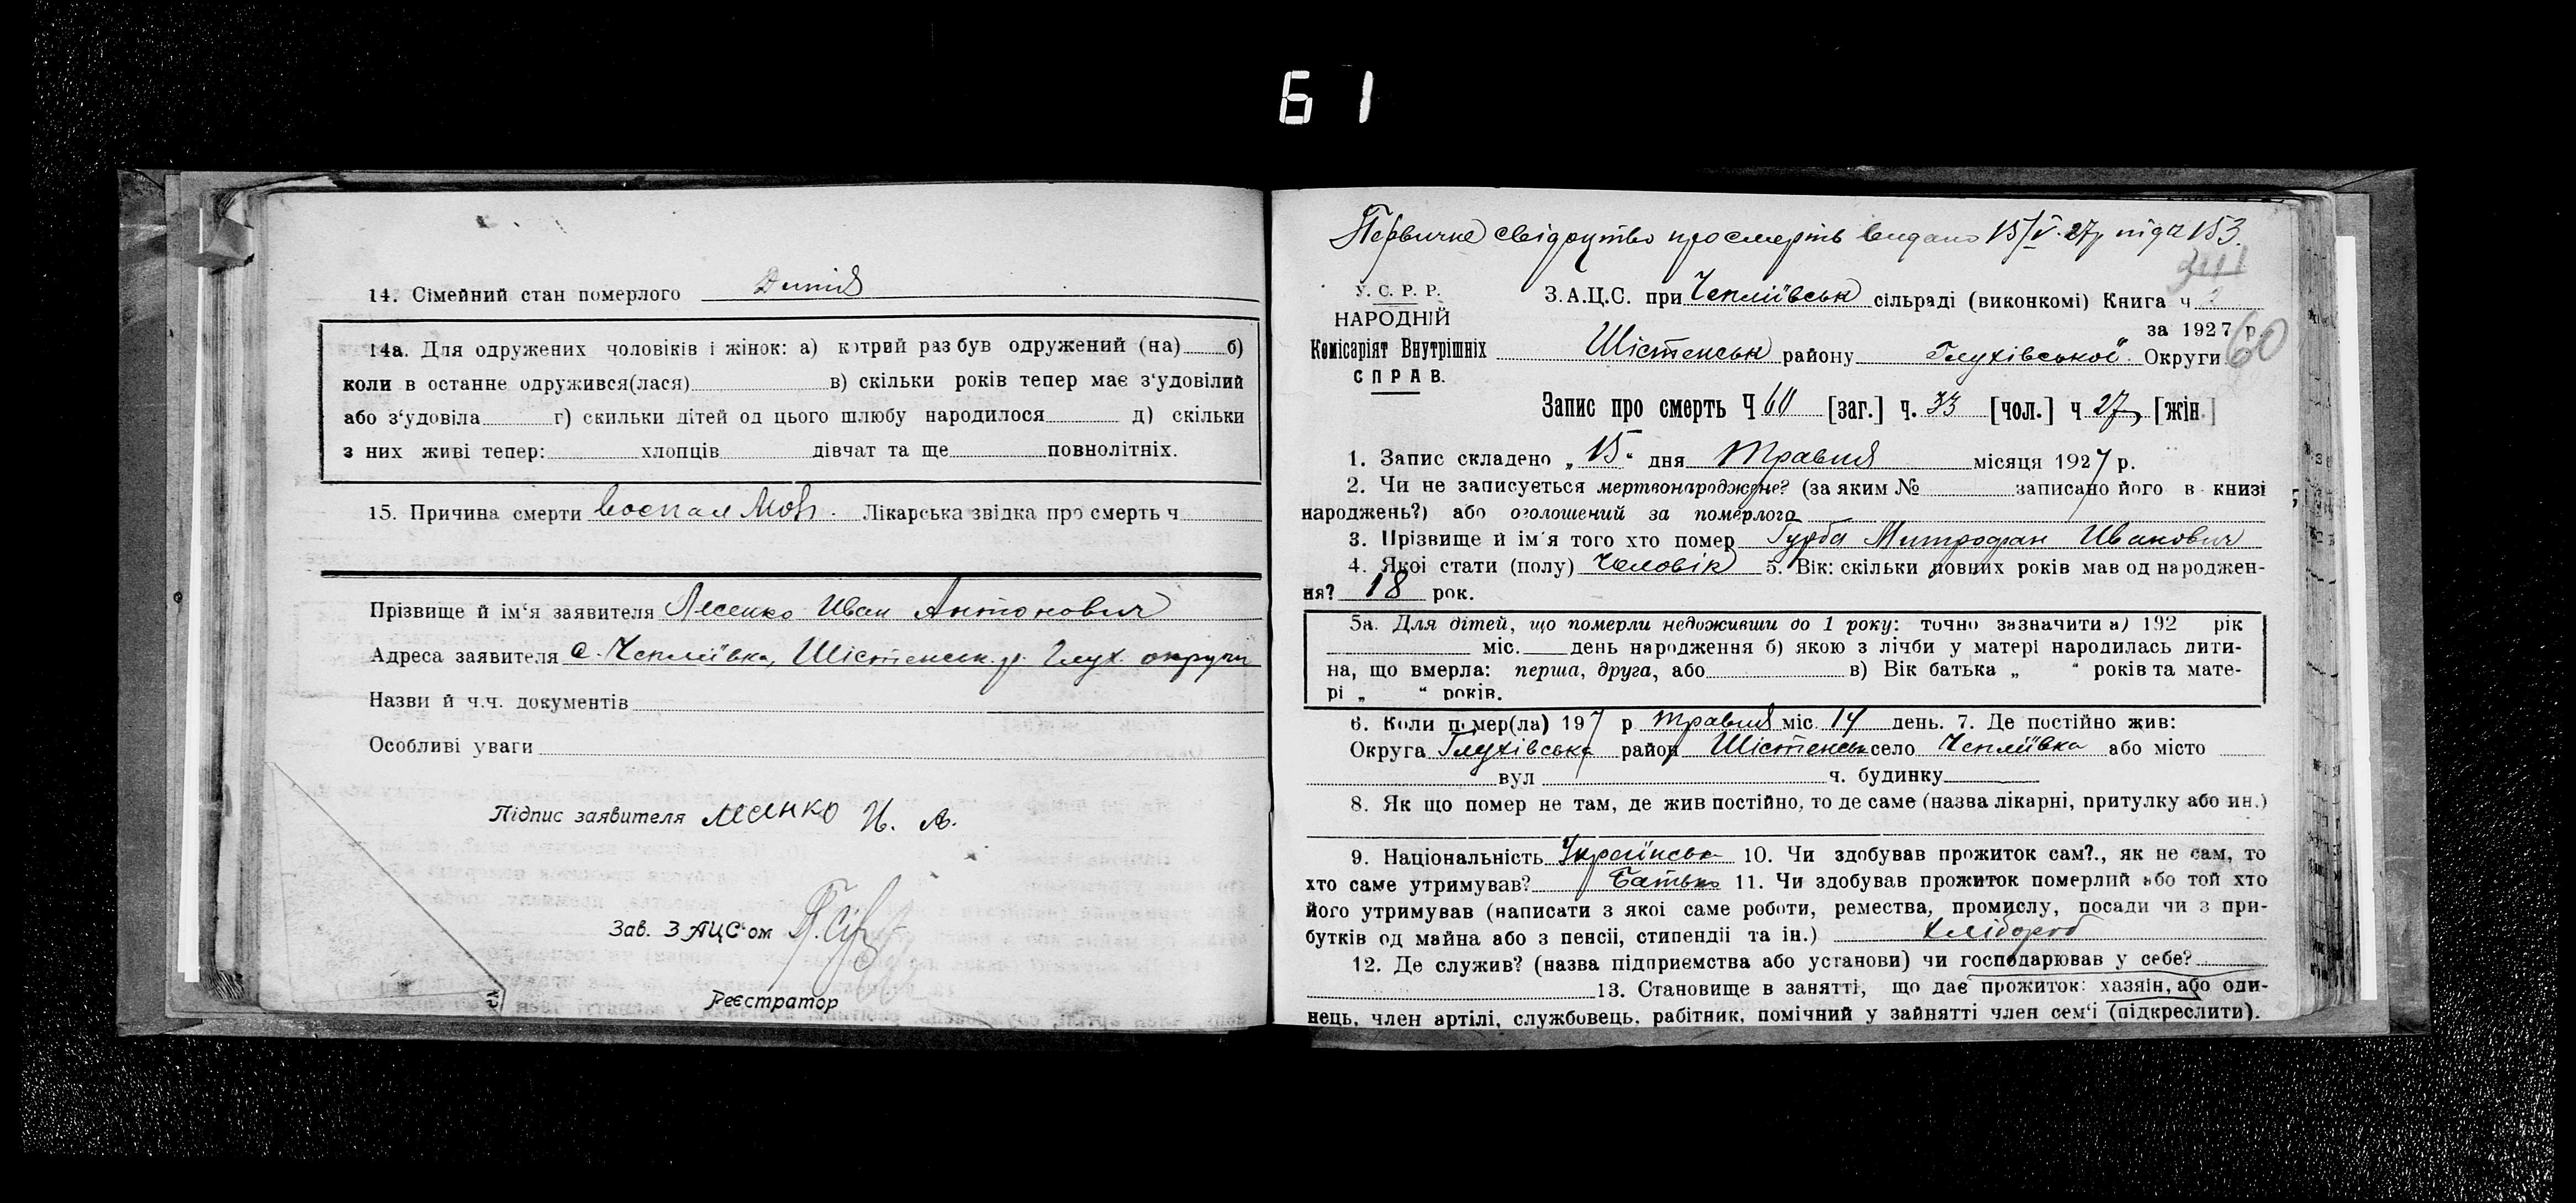 61
14. Сімейний стан померлого Дитя
14а. Для одружених чоловіків і жінок: а) котрий раз був одружений (на) б)
коли в останне одружився(лася) в) скільки років тепер має з‘удовілий
або з‘удовіла г) скильки дітей од цього шлюбу народилося д) скільки
з них живі тепер: хлопців дівчат та ще повнолітніх.
15. Причина смерти воспал Лікарська звідка про смерть ч
Прізвище й ім‘я заявителя Лесенко Иван Антонович
Адреса заявителя с. Чепліївка, Шістенськ. р. Глух. округи
Назви й ч.ч. документів
Особливі уваги
Підпис заявителя Лесенко И. А.
Зав. ЗАЦС‘ом
Реєстратор
Первичне свідоцтво про смерть видано 15/V.27р під № 153.
У. С. Р. Р.
НАРОДНІЙ
Комісаріят Внутрішніх
СПРАВ.
З.А.Ц.С. при Чепліївськ сільраді (виконкомі) Книга ч. 2
за 1927 р.
60
Шістенськ району Глухівської Округи
Запис про смерть Ч 60 [заг.] ч. 33 [чол.] ч 27 [жін.]
1. Запис складено „15“ дня Травня місяця 1927 р.
2. Чи не записуеться мертвонароджене? (за яким № записано його в книзі
народжень?) або оголошений за померлого
3. Прізвище й ім‘я того хто помер Гурба Митрофан Иванович
4. Якоі стати (полу) Чоловік 5. Вік: скільки повних років мав од народжен-
ня? 18 рок.
5а. Для дітей, що померли недоживши до 1 року: точно зазначити а) 192 рік
міс. день народження б) якою з лічби у матері народилась дити-
на, що вмерла: перша, друга, або в) Вік батька „ “ років та мате-
рі „ “ років.
6. Коли помер(ла) 197 р Травня міс. 14 день. 7. Де постійно жив:
Округа Глухівська район Шістенськ село Чепліївка або місто
вул ч. будинку
8. Як що помер не там, де жив постійно, то де саме (назва лікарні, притулку або ин.)
9. Національність Українська 10. Чи здобував прожиток сам?., як не сам, то
хто саме утримував? Батько 11. Чи здобував прожиток померлий або той хто
його утримував (написати з якоі саме роботи, ремества, промислу, посади чи з при-
бутків од майна або з пенсіі, стипендіі та ін.) Хлібороб
12. Де служив? (назва підприємства або установи) чи господарював у себе?
13. Становище в занятті, що дає прожиток: хазяін, або оди-
нець, член артілі, службовець, рабітник, помічний у зайнятті член сем‘і (підкреслити).